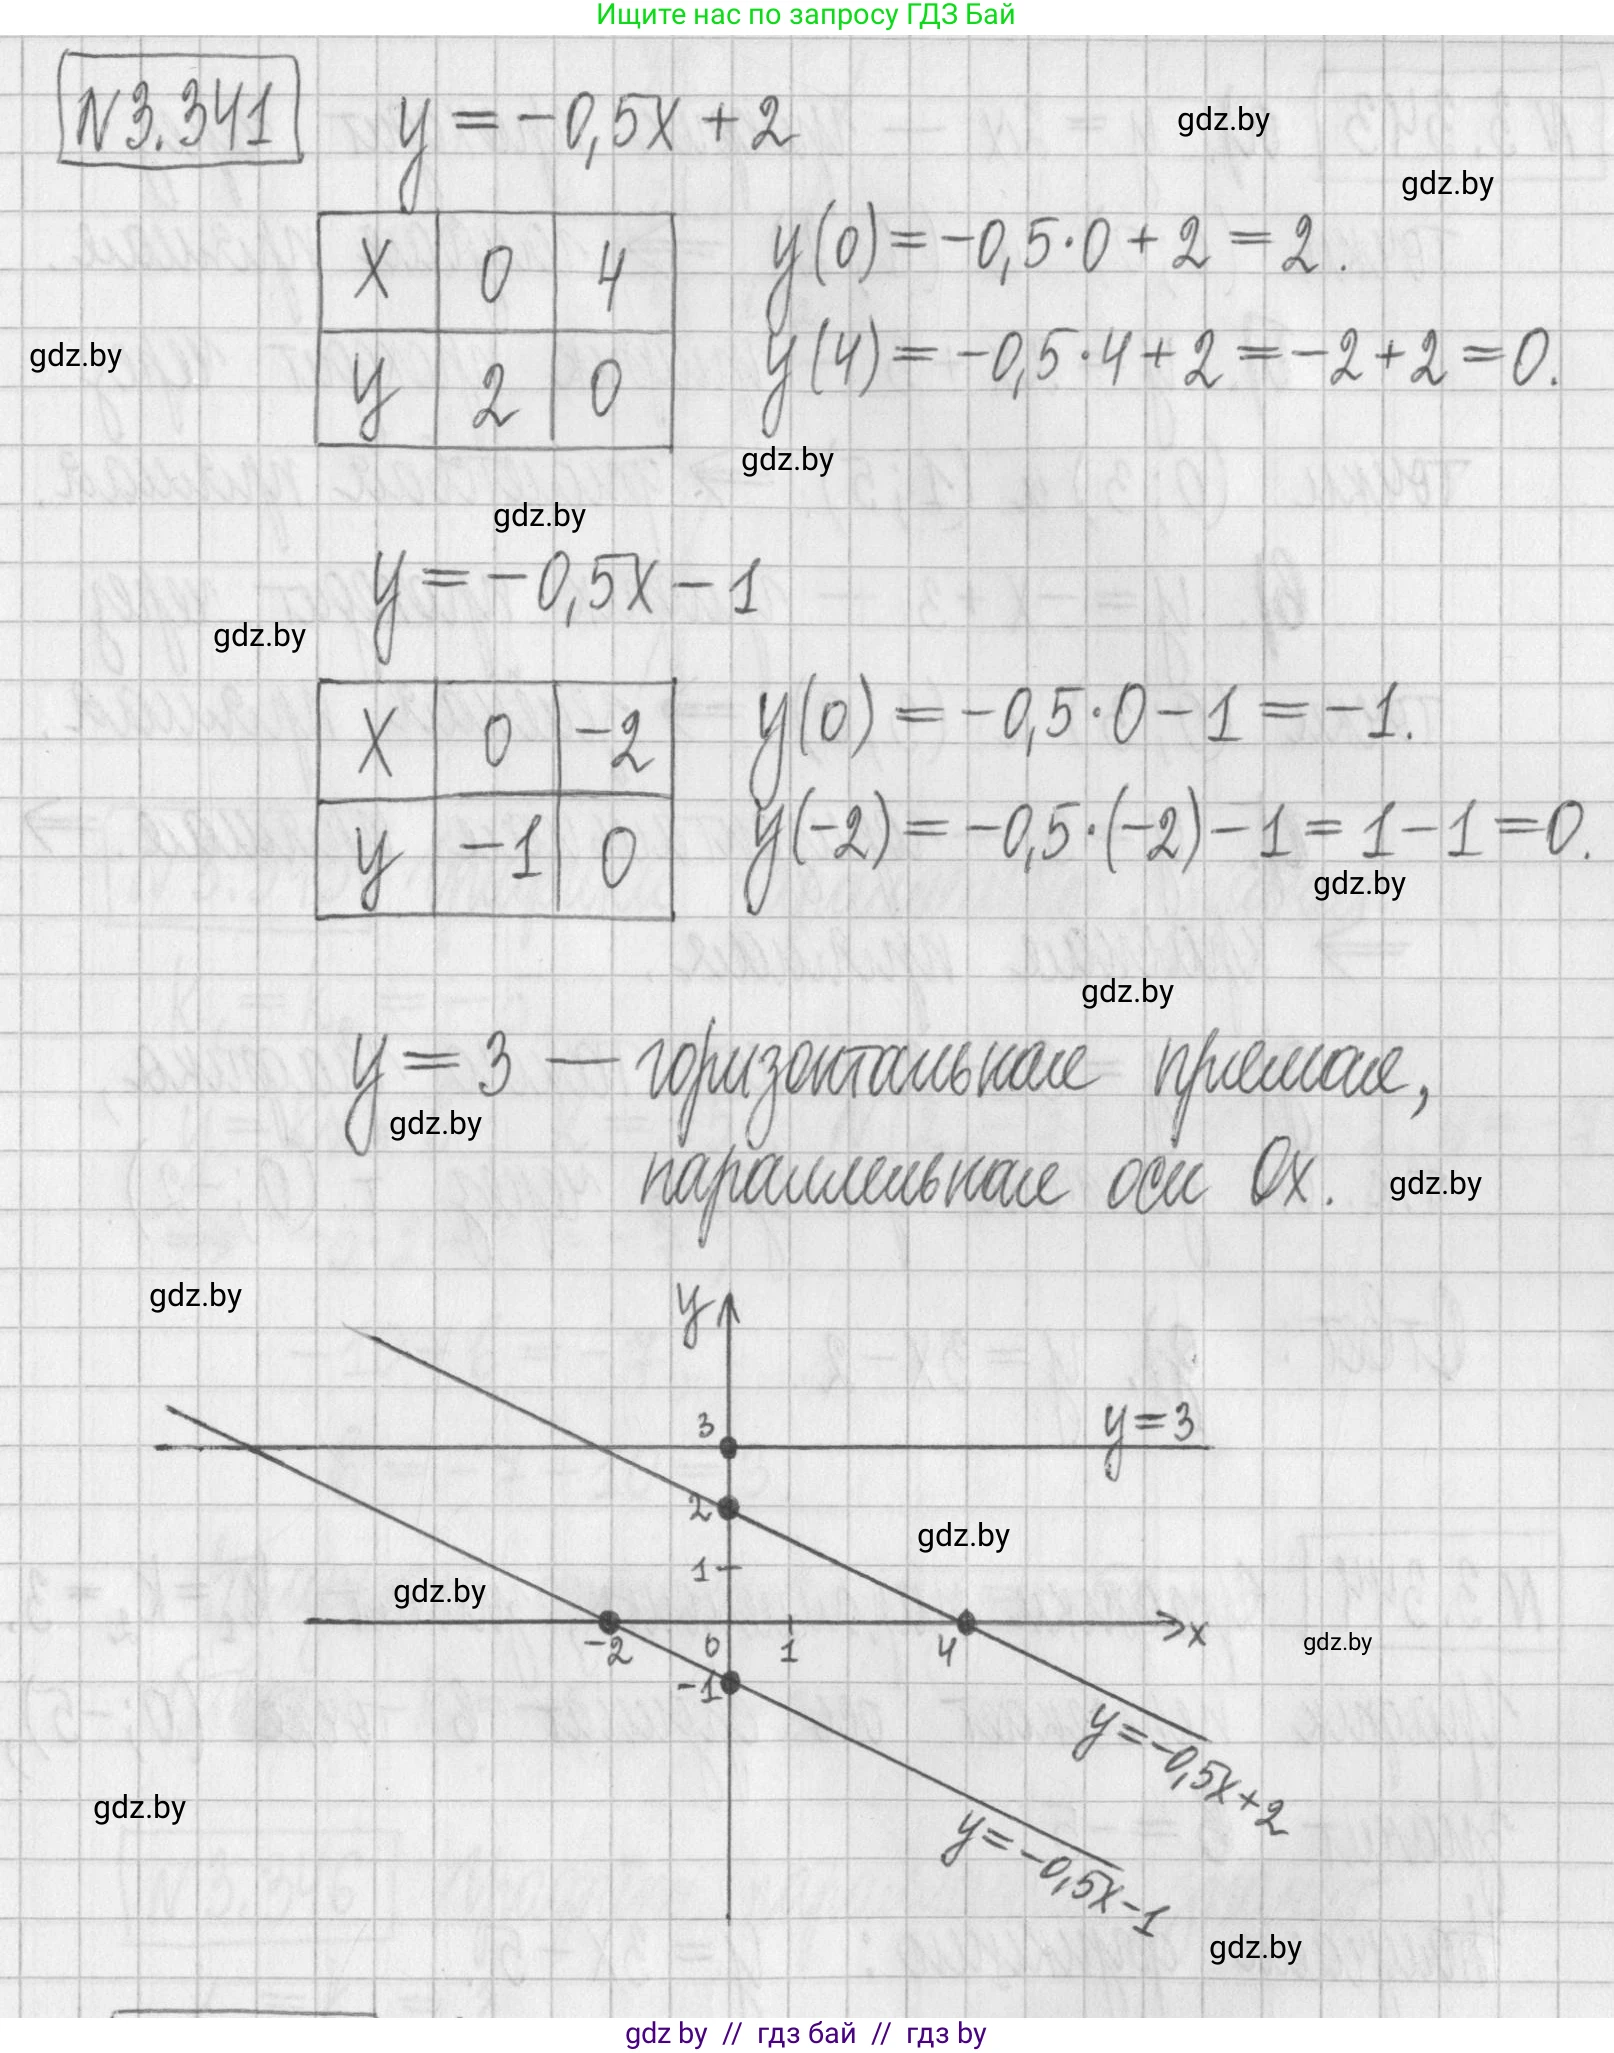 Ищите нас по запросу ГДЗ Бай
N3.341 y = -0,5x + 2
gdz.by
gdz.by
x 0 4
y(0) = -0,5·0 + 2 = 2.
gdz.by
y 2 0
y(4) = -0,5·4 + 2 = -2 + 2 = 0.
gdz.by
gdz.by
y = -0,5x - 1
gdz.by
x 0 -2
y(0) = -0,5·0 - 1 = -1.
y -1 0
y(-2) = -0,5·(-2) - 1 = 1 - 1 = 0.
gdz.by
gdz.by
y = 3 — горизонтальная прямая,
gdz.by
параллельная оси Ox.
gdz.by
gdz.by
y
3
y=3
2
gdz.by
1
gdz.by
-2 0 1 4 x
gdz.by
-1
y=-0,5x+2
gdz.by
y=-0,5x-1
gdz.by
gdz by // гдз бай // гдз by